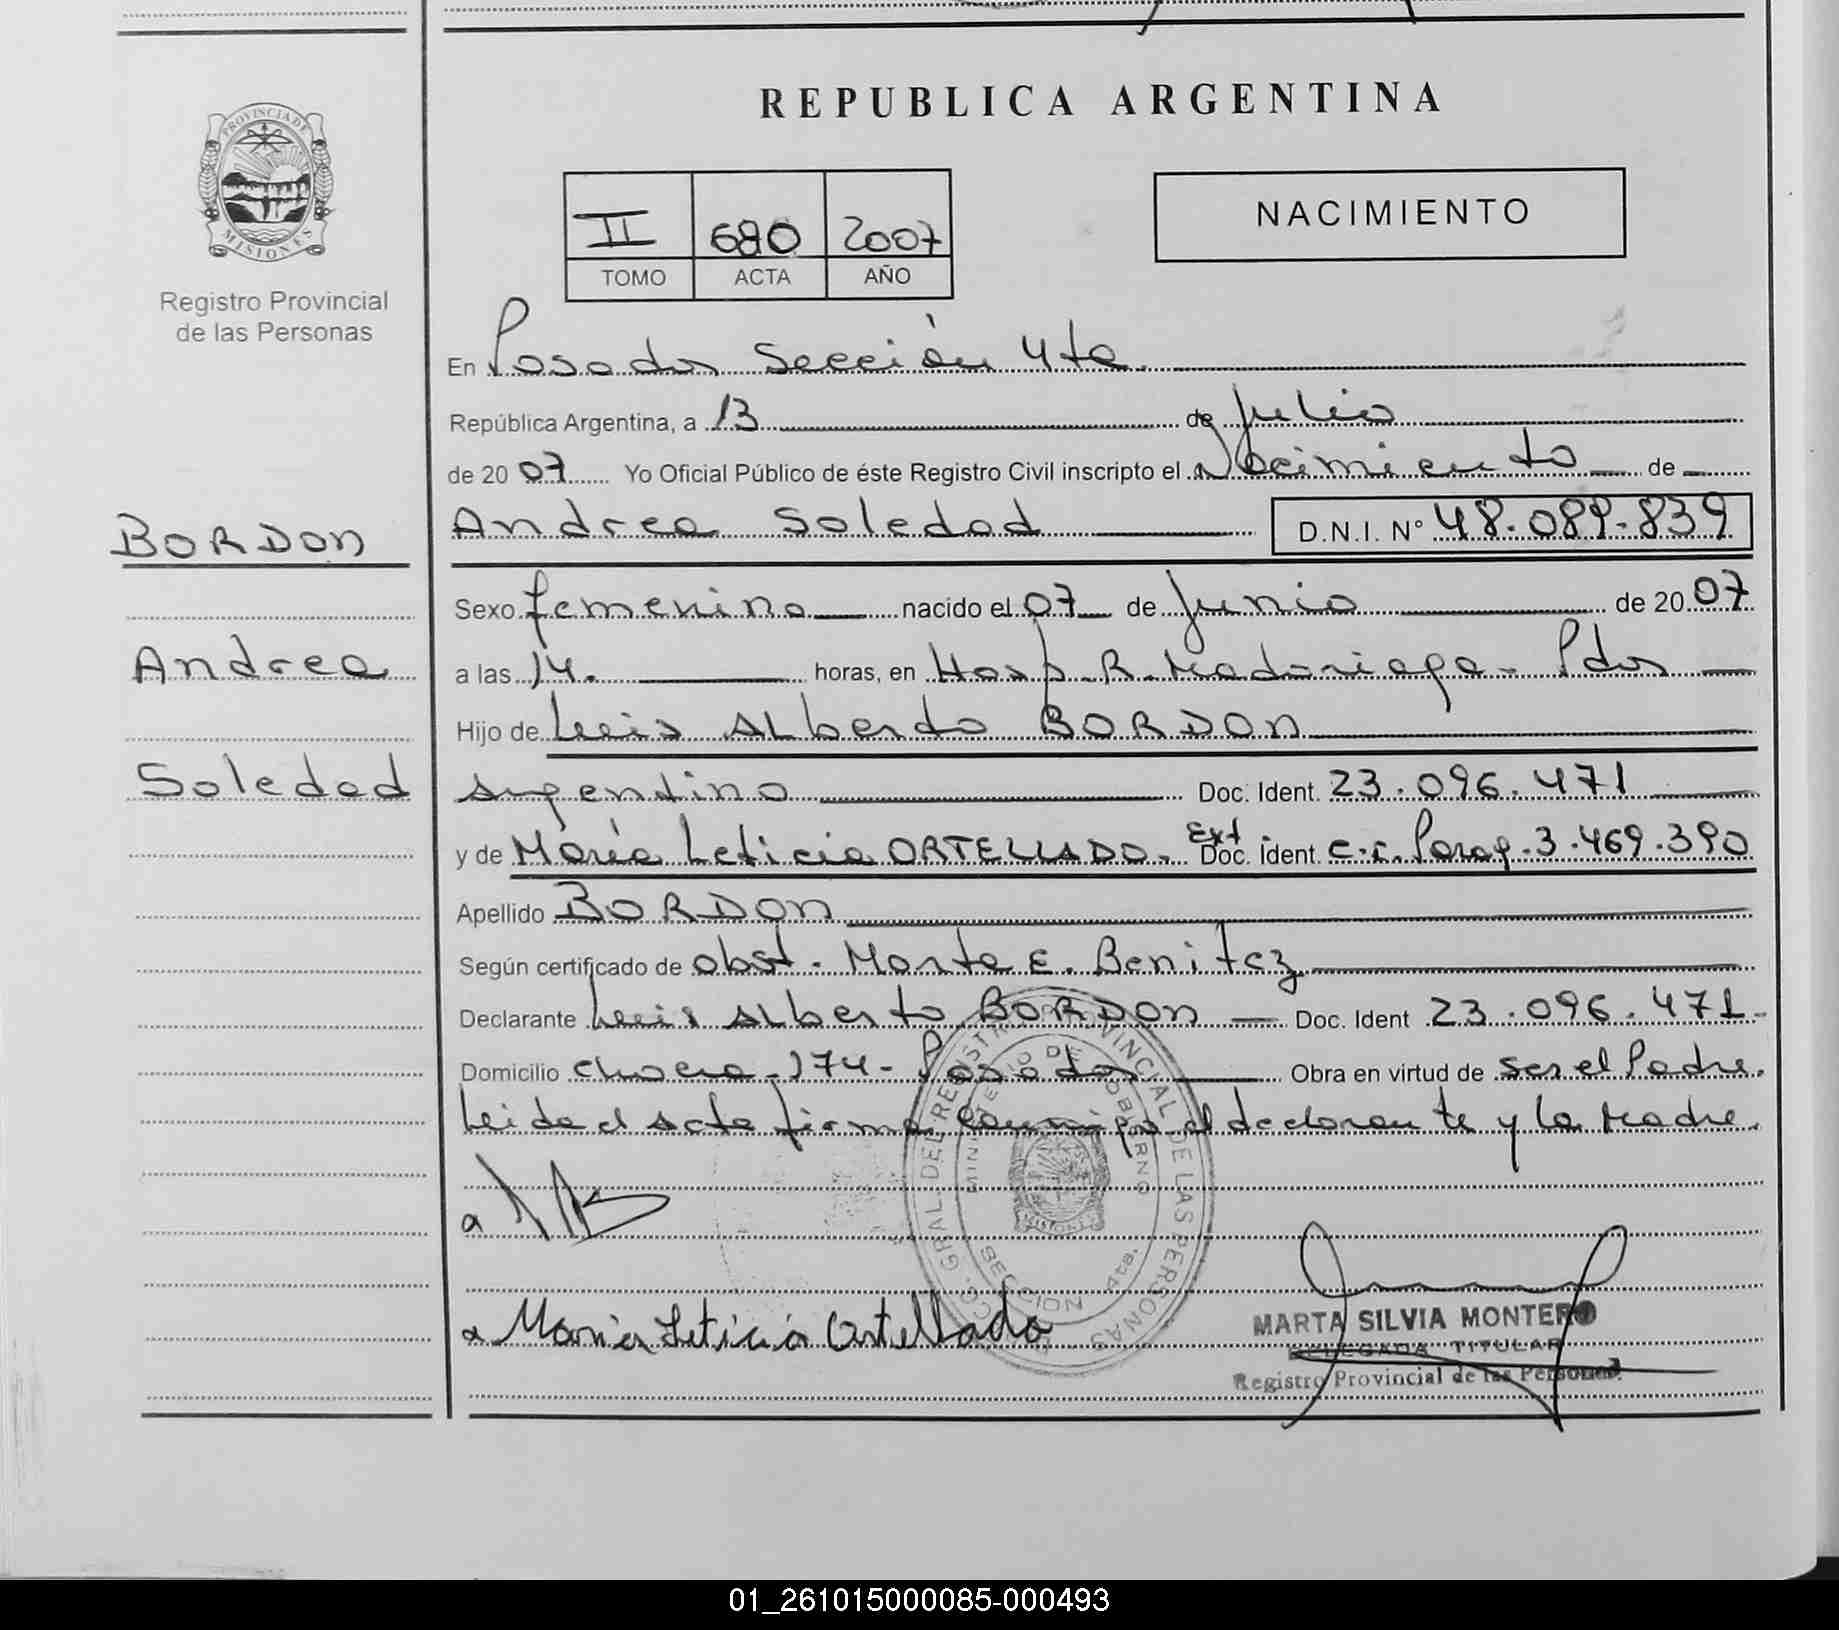 PROVINCIA DE
MISIONES
Registro Provincial
de las Personas
BORDON
Andrea
Soledad
REPUBLICA ARGENTINA
II 680 2007
TOMO ACTA AÑO
NACIMIENTO
En Posadas Sección 4ta.
República Argentina, a 13 de Julio
de 2007 Yo Oficial Público de éste Registro Civil inscripto el Nacimiento de
Andrea Soledad D.N.I. N° 48.089.839
Sexo femenino nacido el 07 de Junio de 2007
a las 14. horas, en Hosp. R. Madariaga - Pdas
Hijo de Luis ALberto BORDON
Argentino Doc. Ident. 23.096.471
y de María Leticia ORTELLADO. Ext Doc. Ident. C.I. Parag. 3.469.390
Apellido BORDON
Según certificado de obst. Marta E. Benitez
Declarante Luis ALberto BORDON Doc. Ident 23.096.471
Domicilio 174 - Posadas Obra en virtud de ser el Padre.
Leida el acta firma conmigo el declarante y la Madre.
a
a Maria Leticia Ortellado
GRAL. DEL REGISTRO PROVINCIAL DE LAS PERSONAS
MINISTERIO DE GOBIERNO
MISIONES
SECCION 4ta.
MARTA SILVIA MONTERO
DELEGADA TITULAR
Registro Provincial de las Personas
01_261015000085-000493